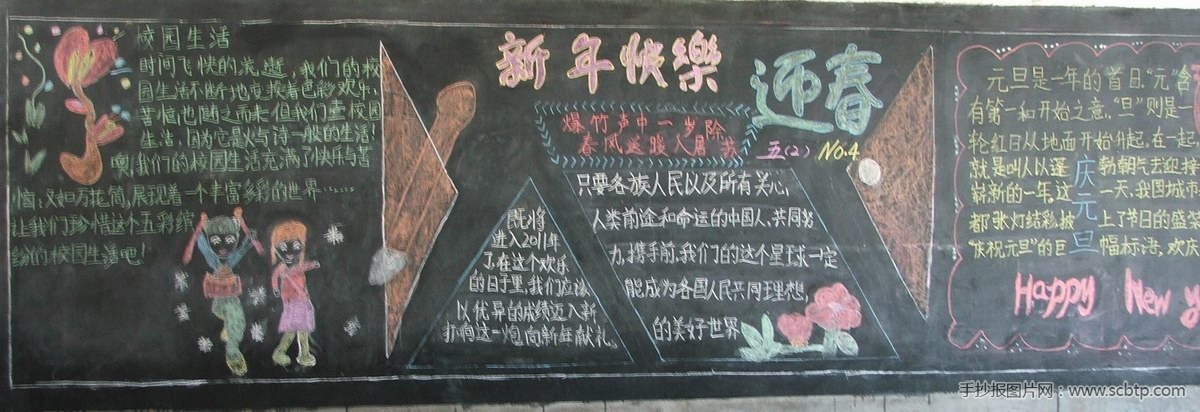 校园生活
时间飞快的流逝,我们的校
园生活不断地变换着色彩欢乐,
苦恼也随之而来但我们爱校园
生活,因为它是火与诗一般的生活!
噢,我们的校园生活充满了快乐与苦
恼,又如万花筒,展现着一个丰富多彩的世界……
让我们珍惜这个五彩缤
纷的校园生活吧!
新年快樂
迎春
爆竹声中一岁除
春风送暖入屠苏
五(2) No.4
既将
进入2011年
了在这个欢乐
的日子里,我们应该
以优异的成绩迈入新
打响这一炮,向新年献礼。
只要各族人民以及所有关心,
人类前途和命运的中国人,共同努
力,携手前,我们的这个星球一定
能成为各国人民共同理想,
的美好世界
元旦是一年的首日."元"含
有第一和开始之意,"旦"则是一
轮红日从地面开始升起.在一起,
就是叫人以蓬勃朝气去迎接
崭新的一年.这一天,我国城市
都张灯结彩,披上了节日的盛
"庆祝元旦"的巨幅标语,欢庆
庆元旦
Happy New y
手抄报图片网:www.scbtp.com